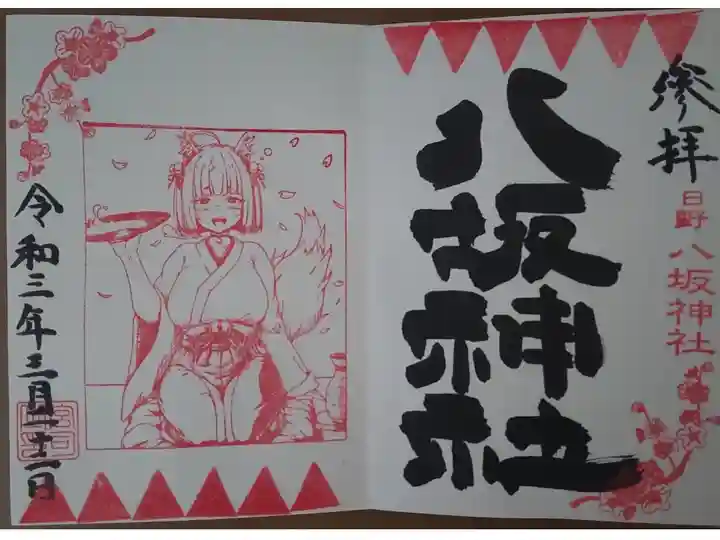 参拝
日野 八坂神社
八坂神社
令和三年三月二十一日